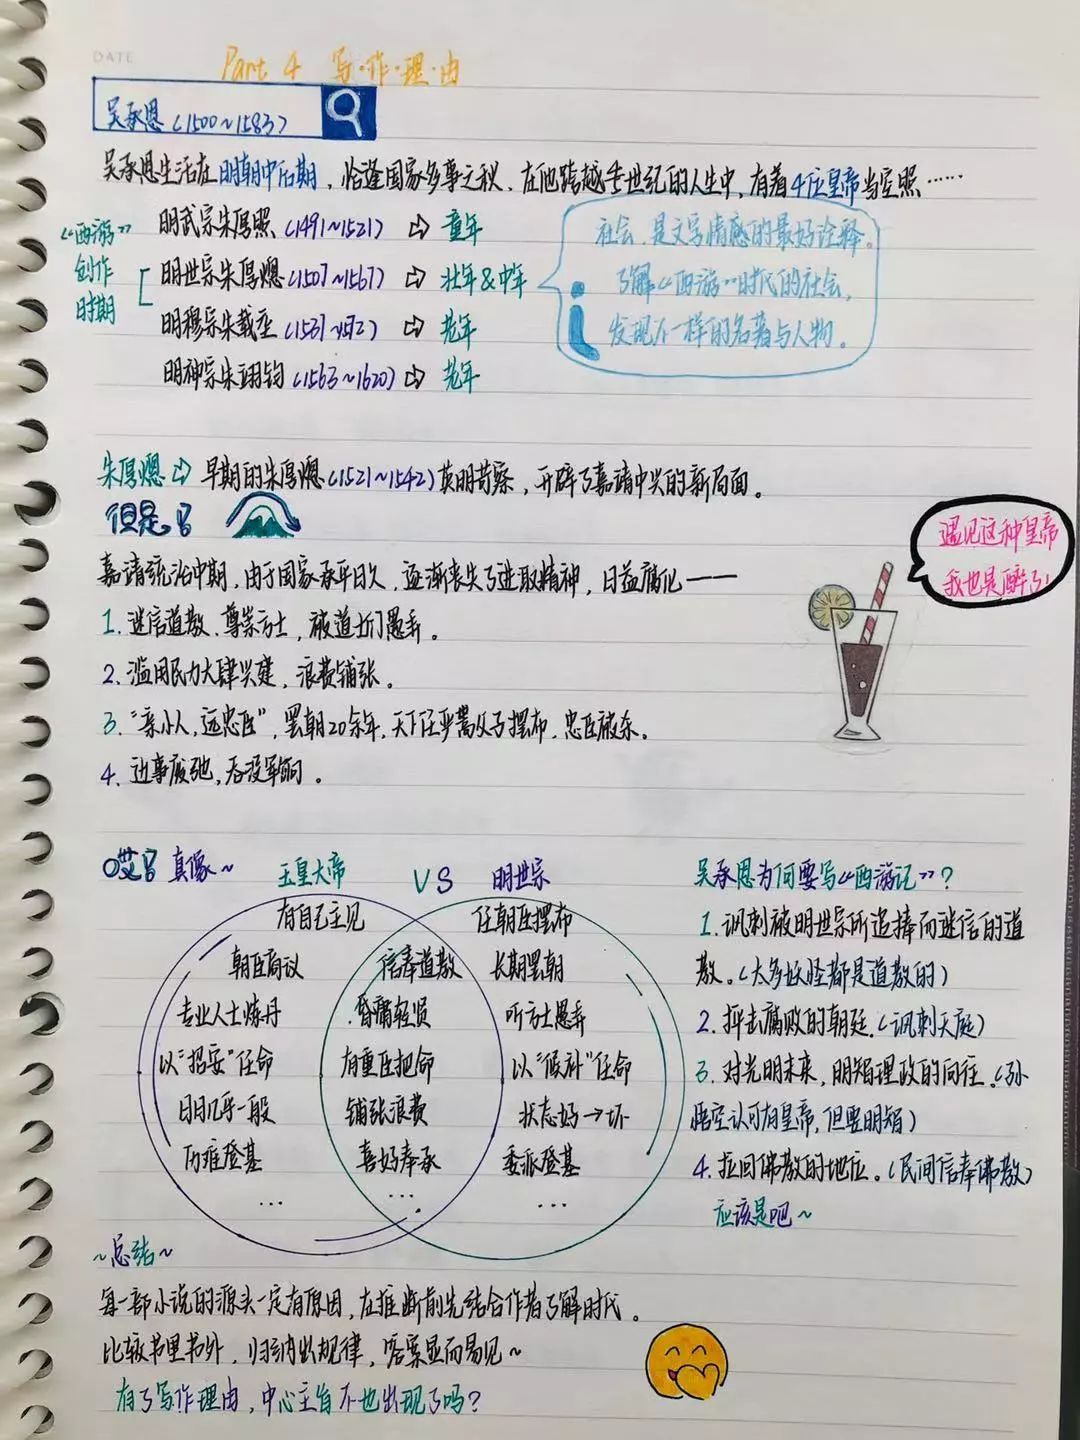 DATE
Part 4 写·作·理·由
吴承恩(1500~1583)
吴承恩生活在明朝中后期，恰逢国家多事之秋。在他跨越半世纪的人生中，有着4位皇帝当空照……
《西游》创作时期
明武宗朱厚照(1491~1521)⇨童年
明世宗朱厚熜(1507~1567)⇨壮年&中年
明穆宗朱载坖(1537~1572)⇨老年
明神宗朱翊钧(1563~1620)⇨老年
社会，是文字情感的最好诠释。
了解《西游》时代的社会，
发现不一样的名著与人物。
朱厚熜⇨早期的朱厚熜(1521~1542)英明苛察，开辟了嘉靖中兴的新局面。
但是
嘉靖统治中期，由于国家承平日久，逐渐丧失了进取精神，日益腐化——
1.迷信道教、尊崇方士，被道士们愚弄。
2.滥用民力大肆兴建，浪费铺张。
3.“亲小人，远忠臣”，罢朝20余年，天下任严嵩父子摆布，忠臣被杀。
4.边事废弛，吞没军饷。
遇见这种皇帝
我也是醉了!
真像~
玉皇大帝 VS 明世宗
有自己主见
朝臣商议
专业人士炼丹
以“招安”任命
日日几乎一般
历难登基
…
信奉道教
昏庸轻贤
有重臣把命
铺张浪费
喜好奉承
…
任朝臣摆布
长期罢朝
听方士愚弄
以“候补”任命
状态好→坏
委派登基
…
吴承恩为何要写《西游记》?
1.讽刺被明世宗所追捧而迷信的道
教。(大多妖怪都是道教的)
2.抨击腐败的朝廷.(讽刺天庭)
3.对光明未来，明智理政的向往。(孙
悟空认可有皇帝，但要明智)
4.拉回佛教的地位。(民间信奉佛教)
应该是吧~
~总结~
每一部小说的源头一定有原因，在推断前先结合作者了解时代。
比较书里书外，归纳出规律，答案显而易见~
有了写作理由，中心主旨不也出现了吗?